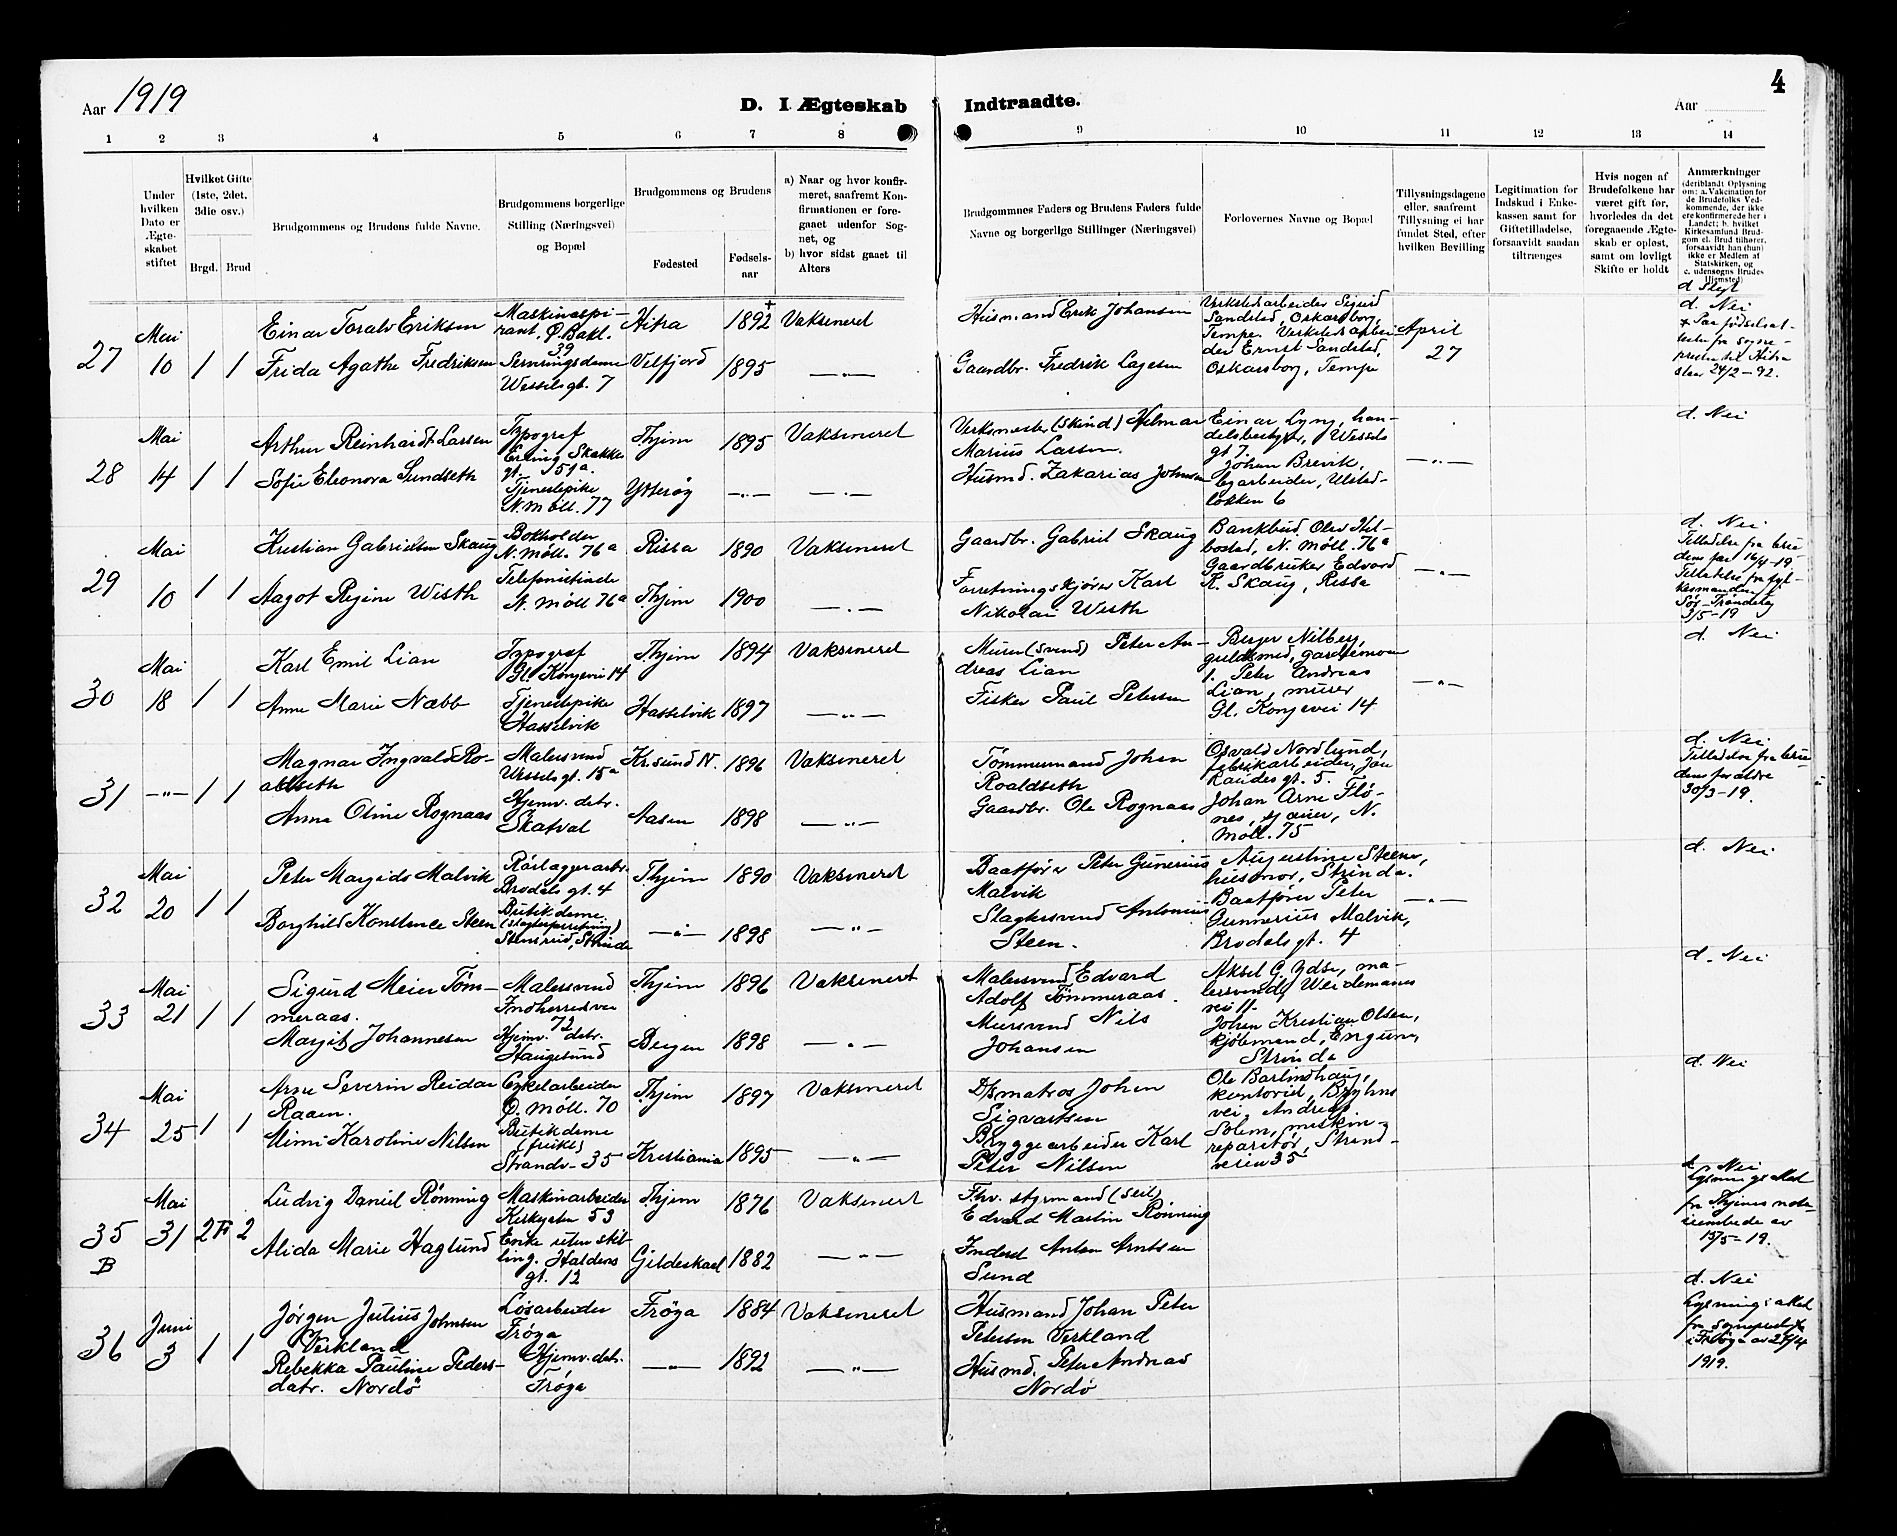 Aar 1919
D. I Ægteskab Indtraadte.
Aar
4
1 2 3 4 5 6 7 8 9 10 11 12 13 14
Under hvilken Dato er Ægteskabet stiftet
Hvilket Gifte (1ste, 2det, 3die osv.)
Brgd. Brud
Brudgommens og Brudens fulde Navne.
Brudgommens borgerlige Stilling (Næringsvei) og Bopæl
Brudgommens og Brudens
Fødested
Fødselsaar
a) Naar og hvor konfirmeret, saafremt Konfirmationen er foregaaet udenfor Sognet, og
b) hvor sidst gaaet til Alters
Brudgommnes Faders og Brudens Faders fulde Navne og borgerlige Stillinger (Næringsvei)
Forlovernes Navne og Bopæl
Tillysningsdagene eller, saafremt Tillysning ei har fundet Sted, efter hvilken Bevilling
Legitimation for Indskud i Enkekassen samt for Giftetilladelse, forsaavidt saadan tiltrænges
Hvis nogen af Brudefolkene har været gift før, hvorledes da det foregaaende Ægteskab er opløst, samt om lovligt Skifte er holdt
Anmærkninger
(deriblandt Oplysning om: a. Vakcination for de Brudefolks Vedkommende, der ikke ere konfirmerede her i Landet; b. hvilket Kirkesamfund Brudgom el. Brud tilhører, forsaavidt han (hun) ikke er Medlem af Statskirken, og c. udensogns Brudes Hjemsted)
27
Mai
10
1 1
Einar Toralv Eriksen
Frida Agathe Fredriksen
Maskinaspi-
rant. Ø. Bakl.
39
Serveringsdame
Wesselsgt. 7
Hitra
Velfjord
+
1892
1895
Vakseneret
— „ —
Husmand Erik Johansen
Gaardbr. Fredrik Lagesen
Verkstedarbeider Sigurd
Sandstad, Oskarsborg,
Tempe, Verkstedarbei-
der Ernst Sandstad,
Oskarsborg, Tempe
April
27
d. Nei
+ Paa fødselsat-
test fra sogne-
presten til Hitra
staar 24/2 – 92.
28
Mai
14
1 1
Arthur Reinhardt Larsen
Sofie Eleonora Sundseth
Typograf
Erling Skakkes
gt. 51a.
Tjenestepike
N. Møll. 77
Thjem
Ytterøy
1895
— „ —
Vakseneret
— „ —
Verksmester (Skind) Hilmar
Marius Larsen.
Husmd. Zakarias Johnsen
Einar Lyng, han-
delsbestyrer, Wessels
gt 7.
Johan Brevik,
byarbeider, Ulstad-
løkken 6
— „ —
d. Nei
29
Mai
10
1 1
Kristian Gabrielsen Skaug
Aagot Regine Wisth
Bokholder
N. Møll. 76a
Telefonistinde
N. Møll 76a
Rissa
Thjem
1890
1900
Vakseneret
— „ —
Gaardbr. Gabriel Skaug
Forretningskjører Karl
Nikolai Wisth
Bankbud Olav Hel-
bostad, N. Møll. 76a
Gaardbruker Edvard
K. Skaug, Rissa
— „ —
d. Nei
Tilladelse fra bru-
dens far 16/4 -19.
Tillatelse fra fyl-
kesmanden i
Sør-Trøndelag
3/5 – 19
30
Mai
18
1 1
Karl Emil Lian
Anna Marie Næbb
Typograf
Gl. Kongevei 14
Tjenestepike
Hasselvik
Thjem
Hasselvik
1894
1897
Vakseneret
— „ —
Murer (svend) Peter An-
dreas Lian
Fisker Paul Petersen
Berger Nilberg,
guldsmed, Gardemoen
1. Peter Andreas
Lian, murer
Gl. Kongevei 14
— „ —
d. Nei
31
— „ —
1 1
Magnar Ingvald Ro-
aldseth
Anna Oline Rognaas
Malersvend
Wesselsgt. 15a
Hjemv. datr.
Skatval
Kr.sund N.
Aasen
1896
1898
Vakseneret
— „ —
Tømmermand Johan
Roaldseth
Gaardbr. Ole Rognaas
Osvald Nordlund,
fabrikarbeider, Jon
Raudes gt. 5.
Johan Arne Flø-
nes, N.
Møll. 75
d. Nei
Tilladelse fra bru-
dens forældre
30/3 – 19.
32
Mai
20
1 1
Peter Margido Malvik
Borghild Konstance Steen
Rørlæggerarb.
Brodals gt. 4
Butikdame
(slagterforretning)
Strinda
Thjem
— „ —
1890
1898
Vakseneret
— „ —
Baatfører Peter Gunerius
Malvik
Slagtersvend Antonius
Steen.
Augustine Steen,
husmor, Strinda.
Baatfører Peter
Gunnerius Malvik,
Brodalsgt. 4
— „ —
d. Nei
33
Mai
21
1 1
Sigurd Meier Tøm-
meraas.
Margit Johannesen
Malersvend
Indherredsvei
72
Hjemv. datr.
Haugesund
Thjem
Bergen
1896
1898
Vakseneret
— „ —
Malersvend Edvard
Adolf Tømmeraas.
Murersvend Nils
Johansen
Aksel G. Ydse, ma-
lersvend, Weidemanns
vei 11.
Johan Kristian Olsen,
kjøbmand,
Strinda
d. Nei
34
Mai
25
1 1
Arne Severin Reidar
Raaen.
Mimi Karoline Nilsen
Cykelarbeider
Ø. Møll. 70
Butikdame
(frukt)
Strandv. 35
Thjem
Kristiania
1897
1895
Vakseneret
— „ —
D/smatros Johan
Sigvartsen
Bryggearbeider Karl
Peter Nilsen
Ole Barlindhaug,
kontorist, Bryhns
vei, Andreas
Solem, maskin-
reparatør, Strand-
veien 35
d. Nei
35
B
Mai
31
2 F 2
Ludvig Daniel Rønning
Alida Marie Haglund
Maskinarbeider
Kirkegaten 53
Enke uten stil-
ling. Haldens
gt. 12
Thjem
Gildeskaal
1876
1882
Vaksenert
— „ —
Fhv. styrmand (seil)
Edvard Martin Rønning
Inderst Anton Arntsen
Sund
d. Nei
Lysningsattest
fra Thjems nota-
riembede av
15/5 – 19.
36
Juni
3
1 1
Jørgen Julius Johnsen
Verkland
Rebekka Pauline Peders-
datr. Nordø
Løsarbeider
Frøya
Hjemv. datr.
Frøya
Frøya
— „ —
1884
1892
Vakseneret
— „ —
Husmand Johan Peter
Petersen Verkland
Husmd. Peter Andreas
Nordø
d. Nei
Lysningsattest
fra Sogneprest
i Frøya av 27/4
1919.